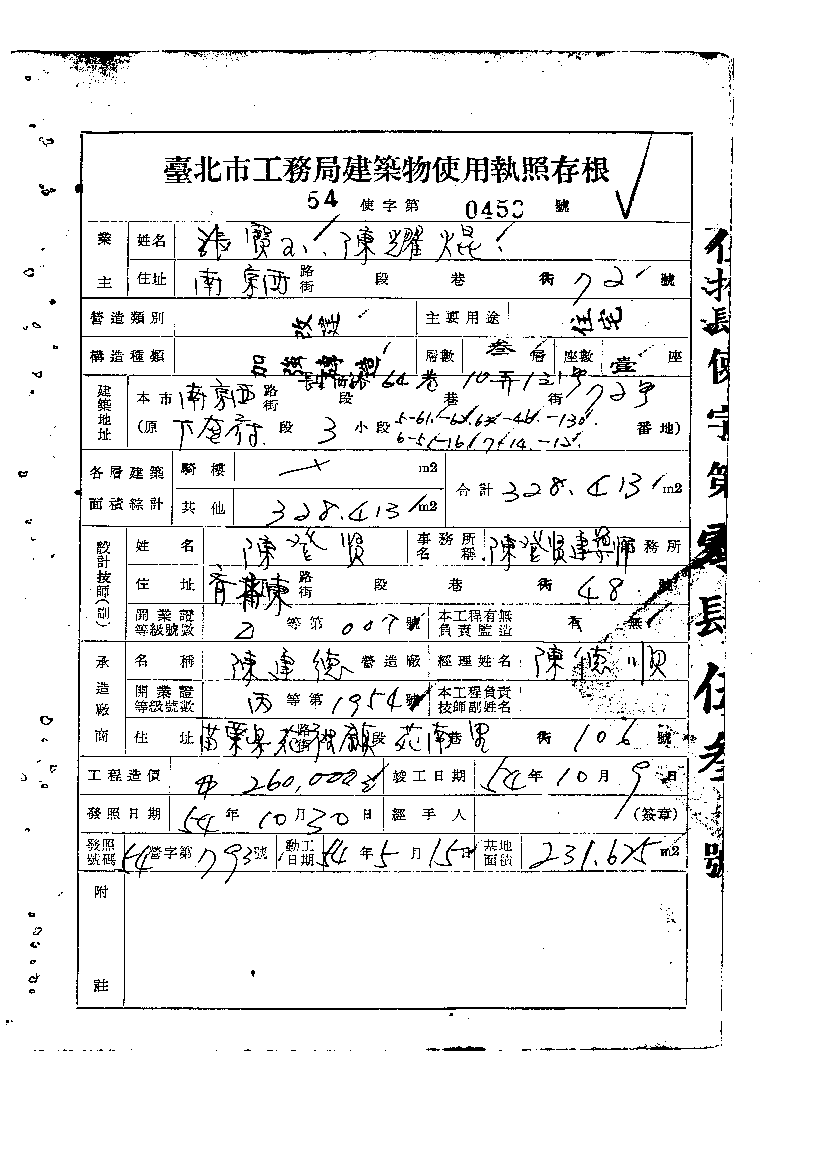 臺北市工務局建築物使用執照存根
54 使字第 0453 號
業主 姓名 陳耀焜
住址 南京西 路街 段 巷 街 72 號
營造類別 改建 主要用途 住宅
構造種類 加強磚造 層數 叁 層 座數 壹 座
64巷10弄121号
建築地址 本市 南京西 路街 段 巷 街 72号
(原 下奎府 段 3 小段 番地)
各層建築面積綜計 騎樓 m2 合計 328.413 m2
其他 328.413 m2
設計技師(副) 姓名 陳登賢 事務所名稱 陳登賢建築師事務所
住址 路街 段 巷 街 48 號
開業證等級號數 等第 007 號 本工程有無負責監造 有 無
承造廠商 名稱 陳建德 營造廠 經理姓名 陳德順
開業證等級號數 丙 等第 1954 號 本工程負責技師副姓名
住址 苗栗縣苑裡鎮 段 苑南里 巷 街 106 號
工程造價 260,000 竣工日期 54 年 10 月 9 日
發照日期 54 年 10 月 30 日 經手人 (簽章)
發照號碼 54 營字第 793 號 動工日期 54 年 5 月 15 日 基地面積 231.675 m2
附註
使字第零肆伍叁號